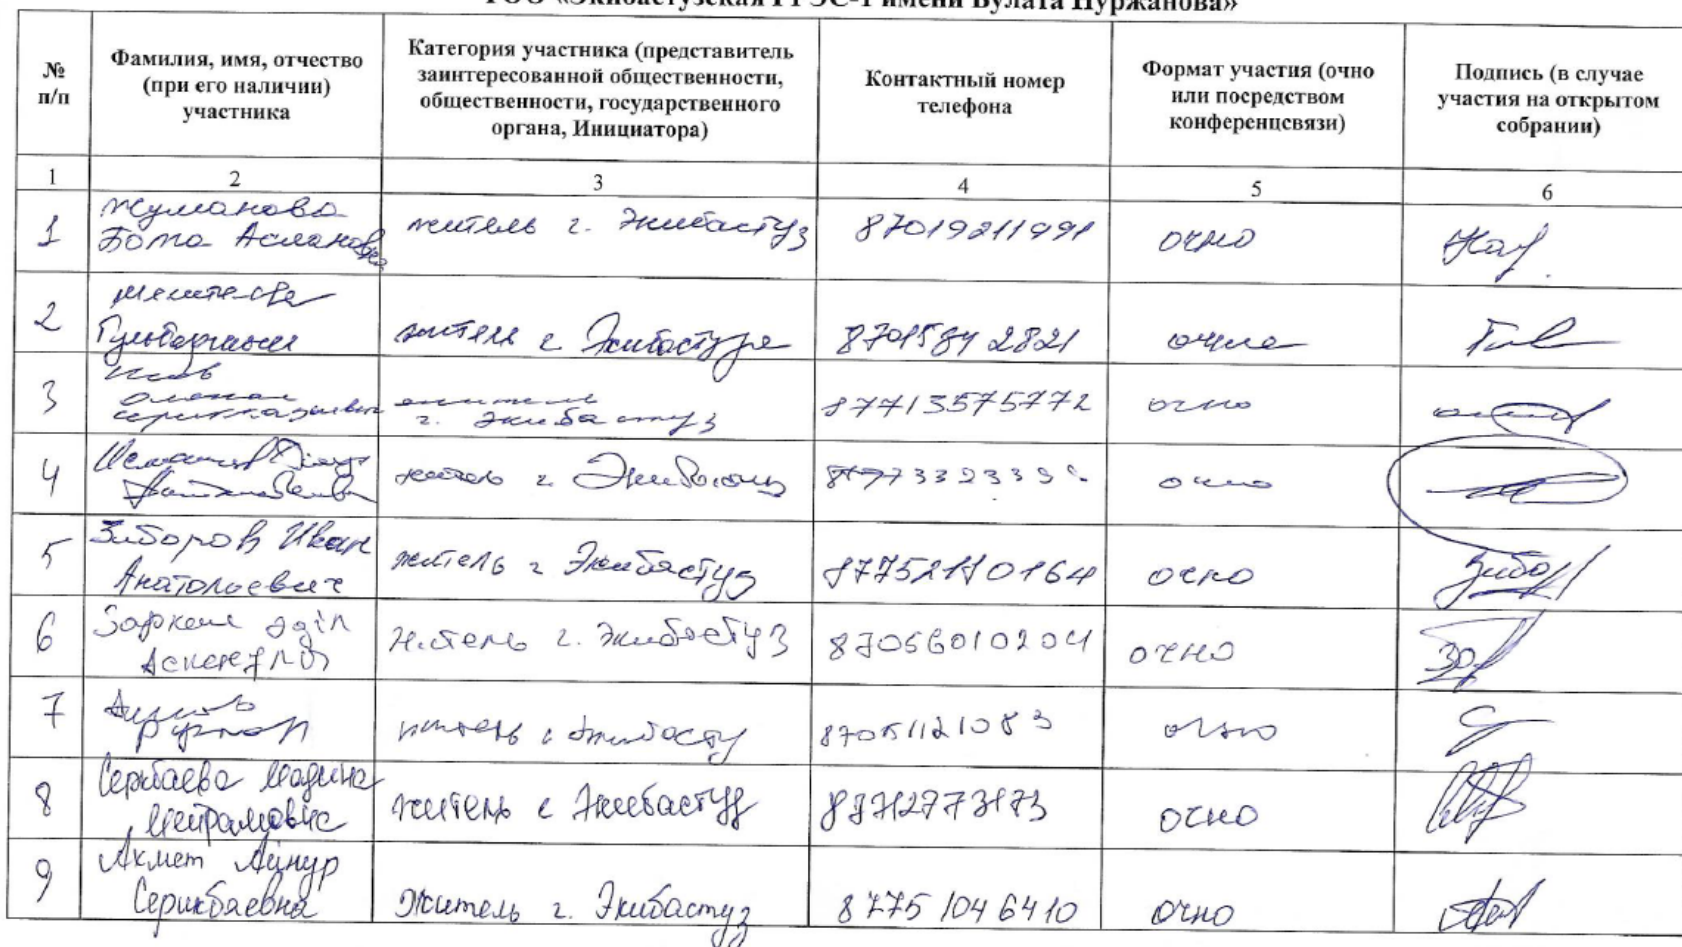 ТОО «Экибастузская ГРЭС-1 имени Булата Нуржанова»
№ п/п
Фамилия, имя, отчество
(при его наличии)
участника
Категория участника (представитель
заинтересованной общественности,
общественности, государственного
органа, Инициатора)
Контактный номер
телефона
Формат участия (очно
или посредством
конференцсвязи)
Подпись (в случае
участия на открытом
собрании)
1 2 3 4 5 6
1 Жуманова
Бота Аслановна житель г. Экибастуз 87019211991 очно
2
житель г Экибастуза 87015842821 очно
3
житель
г. Экибастуз 87713575772 очно
4 житель г Экибастуз очно
5 Зиборов Иван
Анатольевич житель г Экибастуз 87752110164 очно Зибор
6 житель г. Экибастуз 87056010204 очно
7 житель г Экибасту 87051121083 очно
8 Серікбаева Мадина
Мейрамовна житель г Экибастуз 87712773173 очно
9 Ахмет Айнур
Серикбаевна житель г. Экибастуз 87751046410 очно